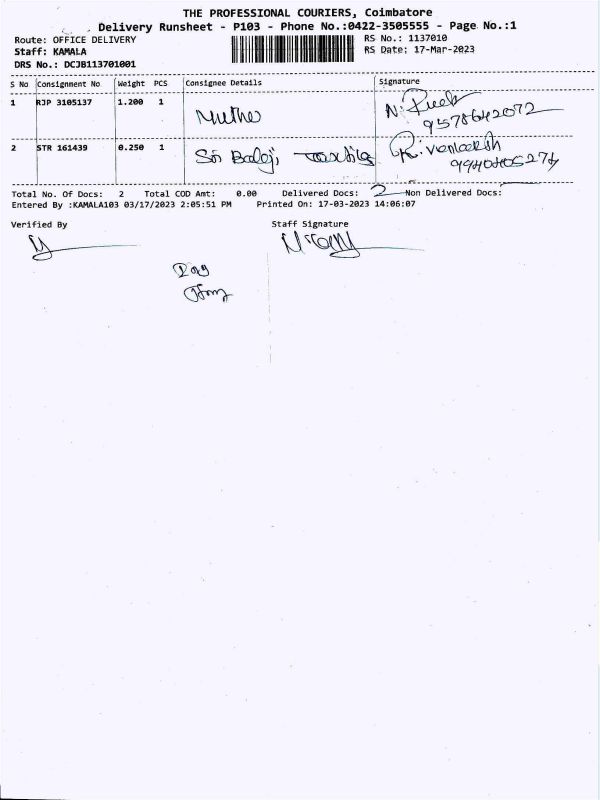 THE PROFESSIONAL COURIERS, Coimbatore
Delivery Runsheet - P103 - Phone No.:0422-3505555 - Page No.:1
Route: OFFICE DELIVERY RS No.: 1137010
Staff: KAMALA RS Date: 17-Mar-2023
DRS No.: DCJB113701001
S No Consignment No Weight PCS Consignee Details Signature
1 RJP 3105137 1.200 1 Muthu
9578642072
2 STR 161439 0.250 1 Sri Balaji R. Venkatesh
Total No. Of Docs: 2 Total COD Amt: 0.00 Delivered Docs: 2 Non Delivered Docs:
Entered By :KAMALA103 03/17/2023 2:05:51 PM Printed On: 17-03-2023 14:06:07
Verified By Staff Signature